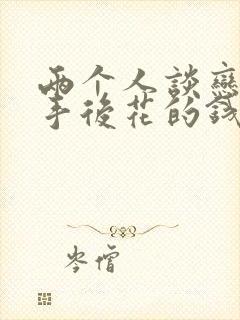 两个人談戀
手後花的錢
岑僧